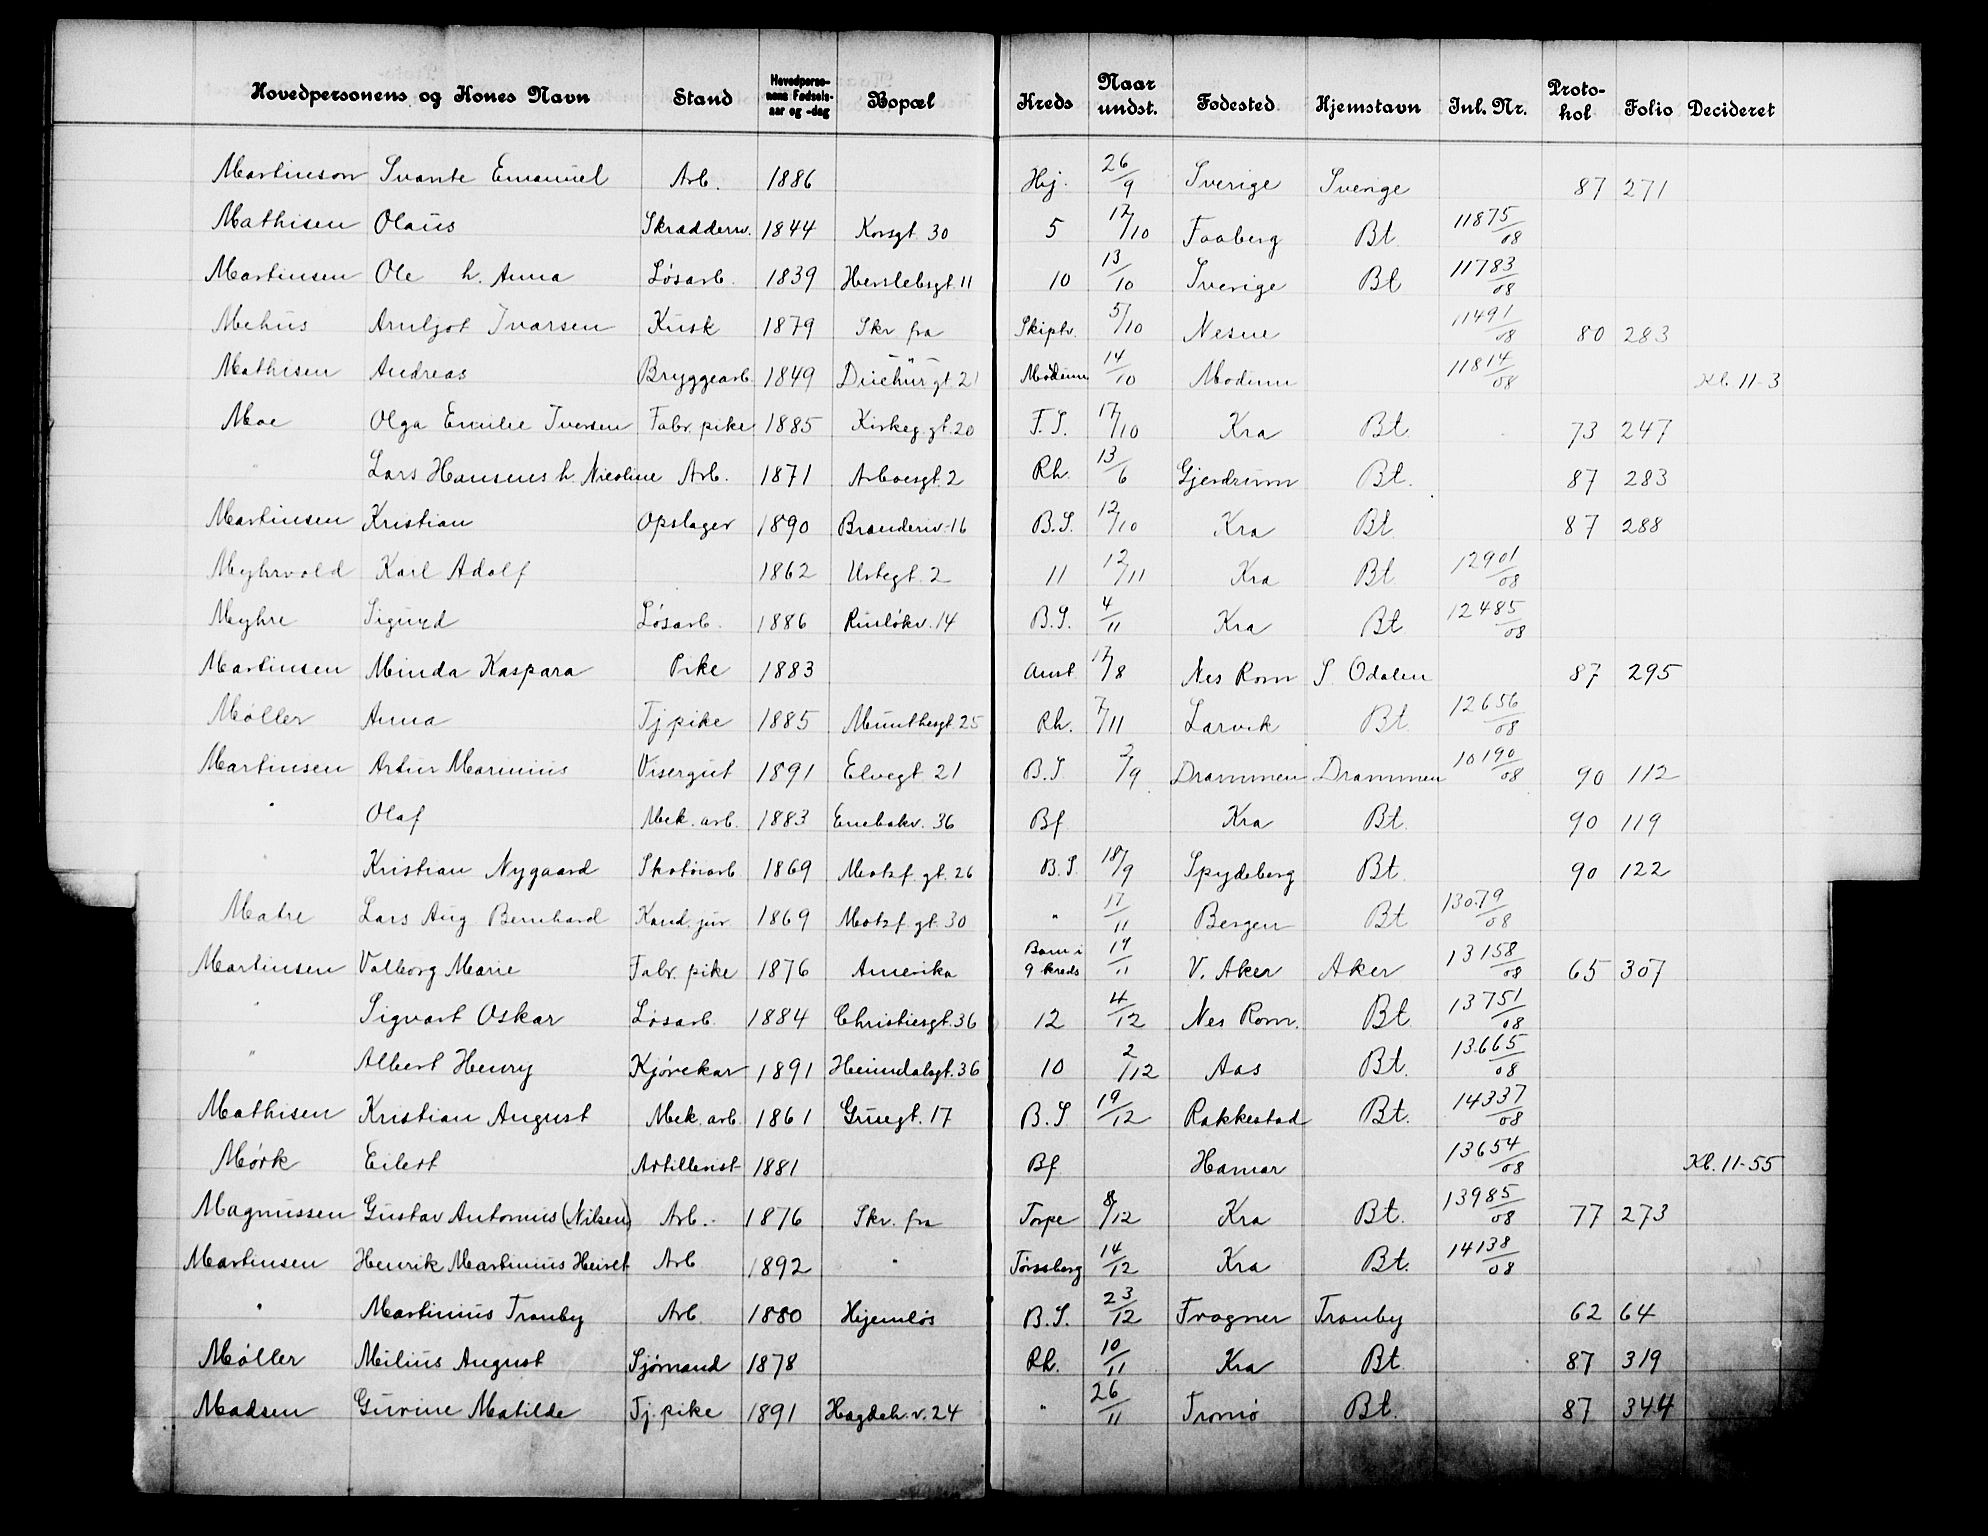 Hovedpersonens og Kones Navn Stand Hovedperso- nens Fødsels- aar og -dag Bopæl Kreds Naar undst. Fødested Hjemstavn Inl. Nr. Proto- kol Folio Decideret
Martinson Svante Emanuel Arb. 1886 Hj. 26/9 Sverige Sverige 87 271
Mathisen Olaus Skrædderm. 1844 Korsgt. 30 5 12/10 Faaberg Bt. 11875/08
Martinsen Ole h. Anna Løsarb. 1839 Herslebsgt. 11 10 13/10 Sverige Bt 11783/08
Mehus Arnljot Ivarsen Kusk 1879 Skr. fra Skiptv. 5/10 Nesne 11491/08 80 283
Mathisen Andreas Bryggearb. 1849 gt. 21 Modum 14/10 Modum 11814/08 Kl. 11-3
Moe Olga Emilie Iversen Fabr. pike 1885 Kirkeg. gt. 20 F.S. 17/10 Kra Bt. 73 247
" Lars Hansens h. Nicoline Arb. 1871 Arboesgt. 2 Rh. 13/6 Gjerdrum Bt. 87 283
Martinsen Kristian Opslager 1890 Branderiv. 16 B.S. 12/10 Kra Bt. 87 288
Myhrvold Karl Adolf 1862 Urtegt. 2 11 12/11 Kra Bt. 12901/08
Myhre Sigurd Løsarb. 1886 Ruseløkv. 14 B.S. 4/11 Kra Bt. 12485/08
Martinsen Minda Kaspara Pike 1883 Amt 17/8 Nes Rom S. Odalen 87 295
Møller Anna Tj.pike 1885 Munthesgt. 25 Rh. 7/11 Larvik Bt. 12656/08
Martinsen Artur Marinius Visergut 1891 Elvegt. 21 B.S. 2/9 Drammen Drammen 10190/08 90 112
" Olaf Mek. arb. 1883 Enebakv. 36 Bf. Kra Bt. 90 119
" Kristian Nygaard Skotøiarb. 1869 Motzf. gt. 26 B.S. 18/9 Spydeberg Bt. 90 122
Matre Lars Aug. Bernhard Kand. jur. 1869 Motzf. gt. 30 " 17/11 Bergen Bt 13079/08
Martinsen Valborg Marie Fabr. pike 1876 Amerika Barn i 9 kreds 19/11 V. Aker Aker 13158/08 65 307
" Sigvart Oskar Løsarb. 1884 Christiesgt. 36 12 4/12 Nes Rom. Bt. 13751/08
" Albert Henry Kjørekar 1891 Heimdalsgt. 36 10 2/12 Aas Bt. 13665/08
Mathisen Kristian August Mek. arb. 1861 Gruegt. 17 B.S. 19/12 Rakkestad Bt. 14337/08
Mørk Eilert Artillerist 1881 Bf. Hamar 13654/08 Kl. 11-55
Magnussen Gustav Antonius (Nilsen) Arb. 1876 Skr. fra Torpe 8/12 Kra Bt. 13985/08 77 273
Martinsen Henrik Martinius Arb. 1892 " 14/12 Kra Bt. 14138/08
" Martinius Tranby Arb. 1880 Hjemløs B.S. 23/12 Frogner Tranby 62 64
Møller Milius August Sjømand 1878 Rh. 10/11 Kra Bt. 87 319
Madsen Gurine Matilde Tj. pike 1891 Hagdeh. v. 24 " 26/11 Tromø Bt. 87 344